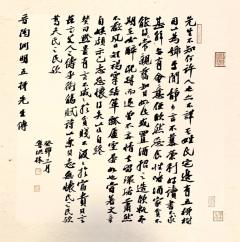 先生不知何許人也亦不詳其姓字宅邊有五柳樹
因以為號焉閑靜少言不慕榮利好讀書不求
甚解每有會意便欣然忘食性嗜酒家貧不
能常得親舊知其如此或置酒招之造飲輒盡
期在必醉既醉而退曾不吝情去留環堵蕭然
不蔽風日短褐穿結簞瓢屢空晏如也常著文章
自娛頗示己志忘懷得失以此自終
贊曰黔婁有言不戚戚於貧賤不汲汲於富貴其言
茲若人之儔乎銜觴賦詩以樂其志無懷氏之民歟
葛天氏之民歟
晉陶淵明五柳先生傳
癸卯三月